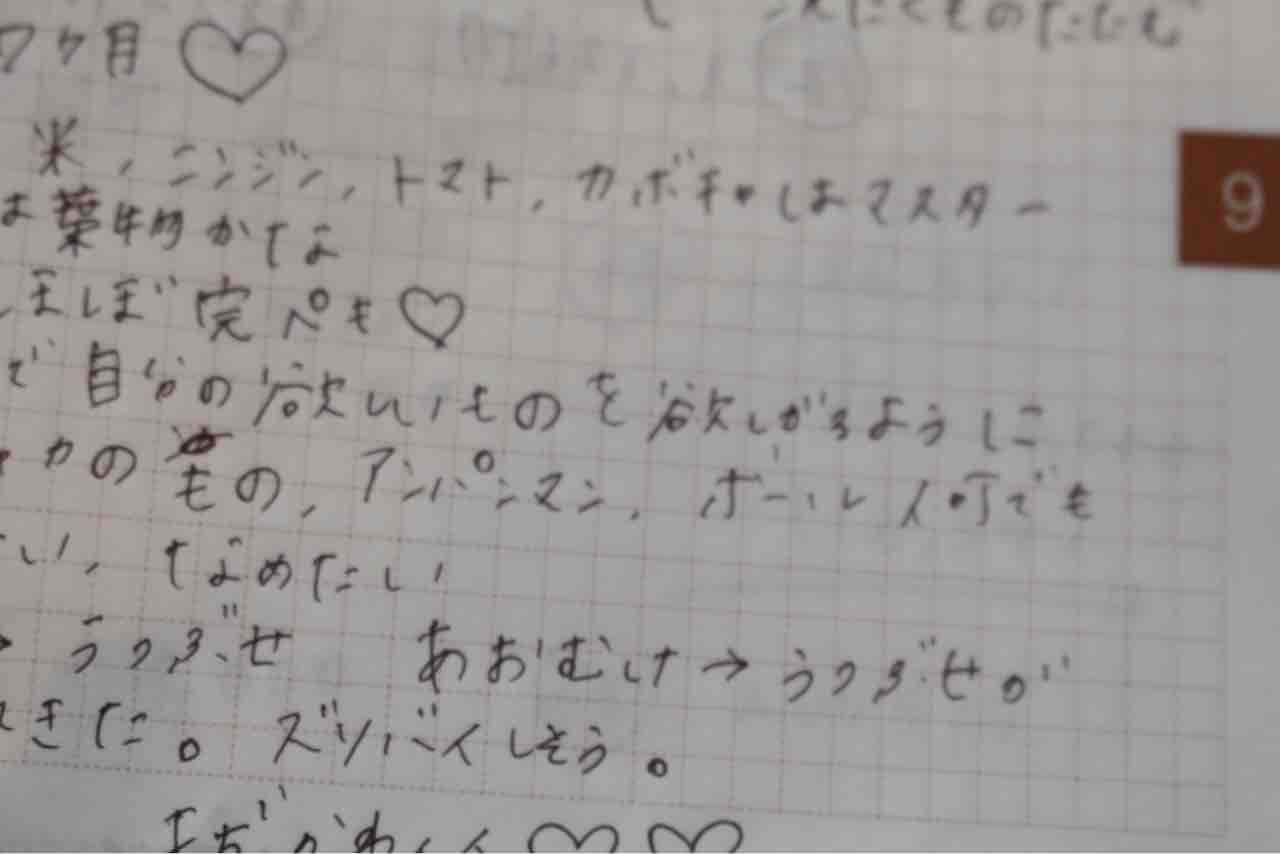 7ヶ月♡
米、ニンジン、トマト、カボチャはマスター
は葉物かな
ほぼ完ペキ♡
で自分の欲しいものを欲しがるように
カの もの、アンパンマン、ボール人形でも
い、なめたい
→うつぶせ あおむけ→うつぶせが
きた。ズリバイしそう。
9